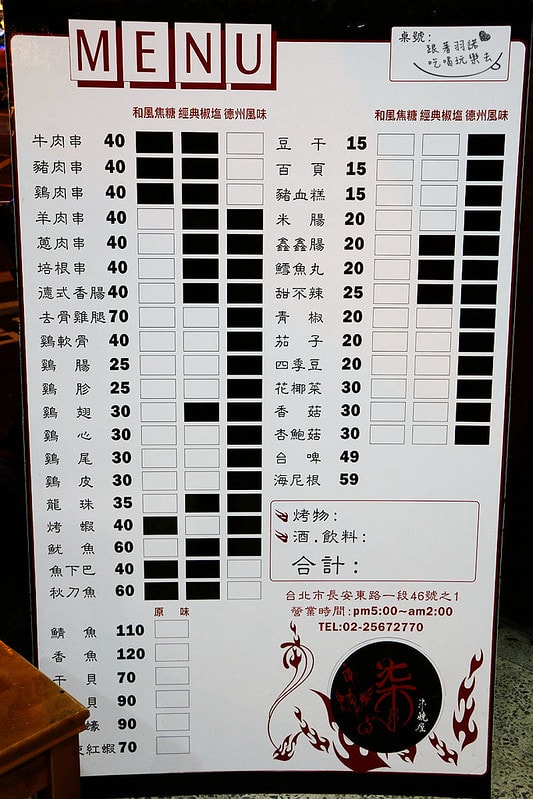 MENU
桌號:
跟著羽諾
吃喝玩樂去
和風焦糖 經典椒塩 德州風味
牛肉串 40
豬肉串 40
鷄肉串 40
羊肉串 40
蔥肉串 40
培根串 40
德式香腸 40
去骨雞腿 70
鷄軟骨 40
鷄腸 25
鷄胗 25
鷄翅 30
鷄心 30
鷄尾 30
鷄皮 30
龍珠 35
烤蝦 40
魷魚 60
魚下巴 40
秋刀魚 60
原味
鯖魚 110
香魚 120
干貝 70
貝 90
蠔 90
紅蝦 70
和風焦糖 經典椒塩 德州風味
豆干 15
百頁 15
豬血糕 15
米腸 20
鑫鑫腸 20
鱈魚丸 20
甜不辣 25
青椒 20
茄子 20
四季豆 20
花椰菜 30
香菇 30
杏鮑菇 30
台啤 49
海尼根 59
烤物:
酒.飲料:
合計:
台北市長安東路一段46號之1
營業時間:pm5:00~am2:00
TEL:02-25672770
柒
串燒屋